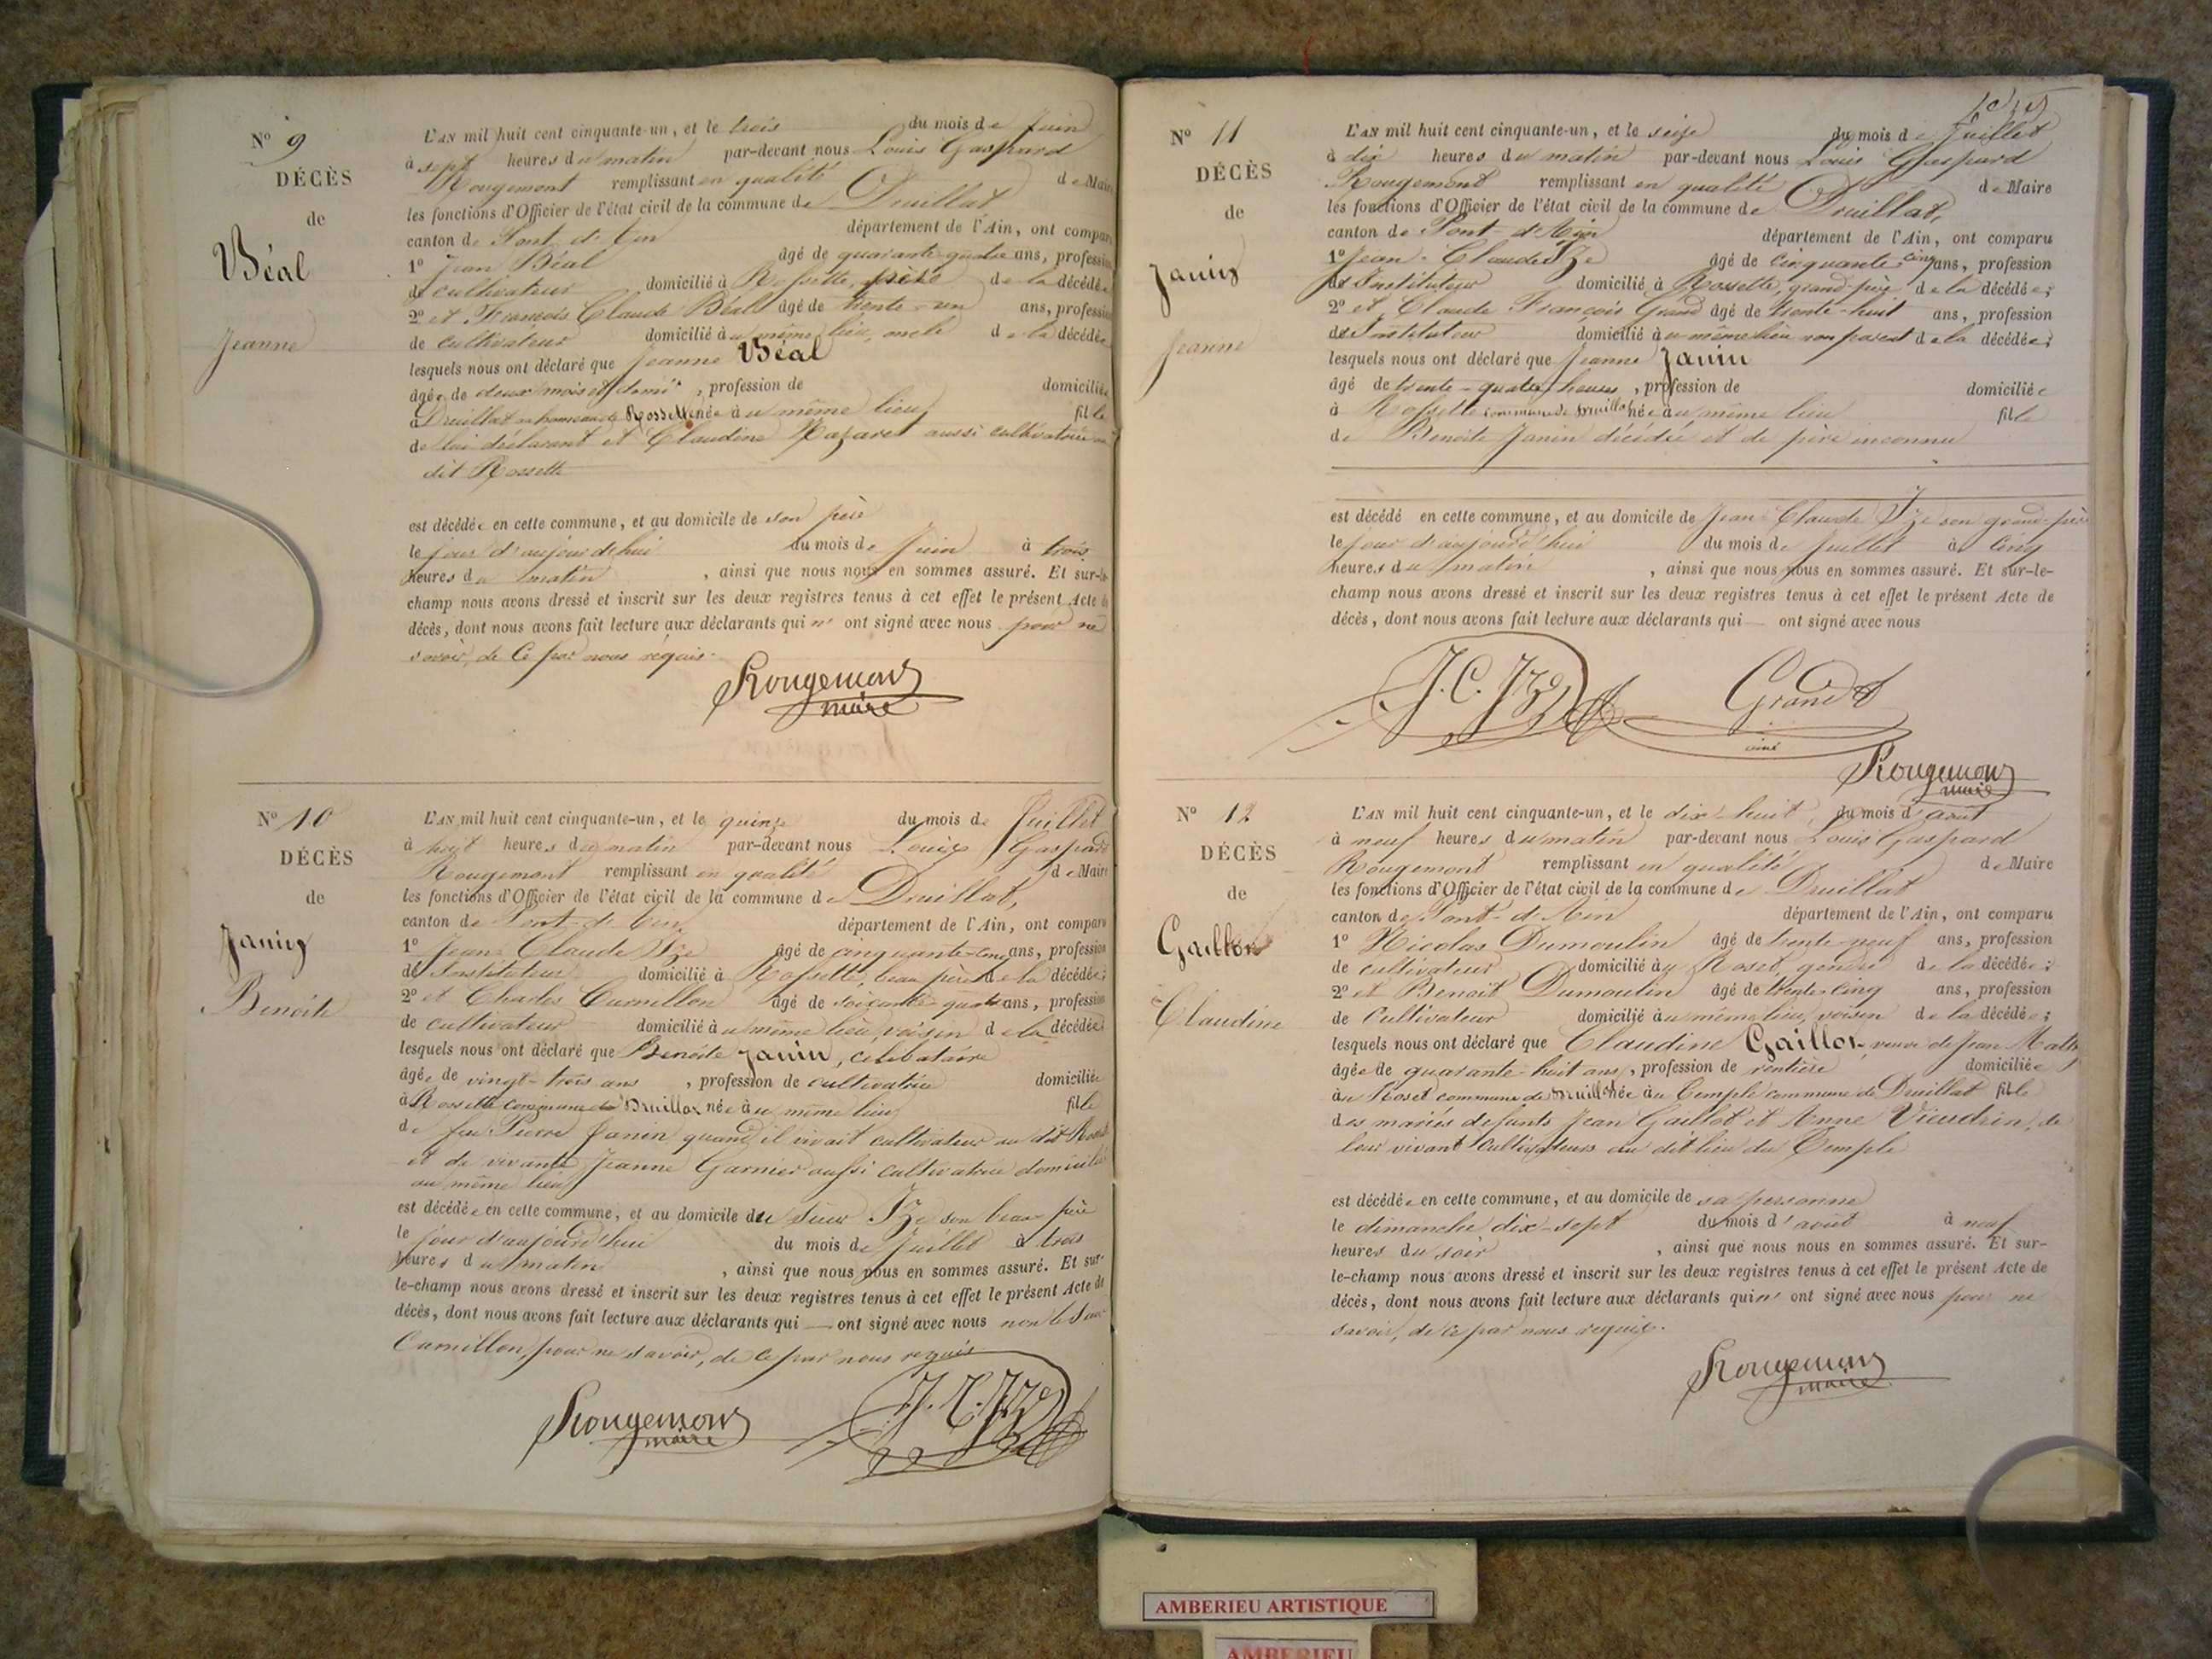 N° 9
DÉCÈS
de
Béal
Jeanne
L'AN mil huit cent cinquante-un, et le trois du mois de Juin
à sept heures du matin par-devant nous Louis Gaspard
Rougemont remplissant en qualité de Maire
les fonctions d'Officier de l'état civil de la commune de Druillat
canton de Pont-d'Ain département de l'Ain, ont comparu
1° Jean Béal âgé de quarante-quatre ans, profession
de cultivateur domicilié à Rossette, père de la décédée
2° et François Claude Béal âgé de trente-un ans, profession
de cultivateur domicilié au même lieu, oncle de la décédée
lesquels nous ont déclaré que Jeanne Béal
âgée de deux mois et demi, profession de domiciliée
à Druillat hameau de Rossette née à u même lieu fille
de lui déclarant et Claudine Nazaret aussi cultivatrice
dit Rossette
est décédée en cette commune, et au domicile de son père
le jour d'aujourdhui du mois de Juin à trois
heures du matin, ainsi que nous nous en sommes assuré. Et sur-le-
champ nous avons dressé et inscrit sur les deux registres tenus à cet effet le présent Acte de
décès, dont nous avons fait lecture aux déclarants qui n' ont signé avec nous pour ne
savoir, de ce par nous requis.
Rougemont
maire
N° 10
DÉCÈS
de
Janin
Benoite
L'AN mil huit cent cinquante-un, et le quinze du mois de Juillet
à huit heures du matin par-devant nous Louis Gaspard
Rougemont remplissant en qualité de Maire
les fonctions d'Officier de l'état civil de la commune de Druillat,
canton de Pont-d'Ain département de l'Ain, ont comparu
1° Jean Claude Ize âgé de cinquante-cinq ans, profession
de Instituteur domicilié à Rossette, beau père de la décédée;
2° et Charles Camillon âgé de soixante-quatre ans, profession
de cultivateur domicilié à u même lieu, voisin de la décédée;
lesquels nous ont déclaré que Benoite Janin, célibataire
âgée de vingt-trois ans, profession de cultivatrice domiciliée
à Rossette commune de Druillat née à u même lieu fille
de feu Pierre Janin quand il vivait cultivateur au dit Rossette
et de vivante Jeanne Garnier aussi cultivatrice domiciliée
au même lieu
est décédée en cette commune, et au domicile du sieur Izé son beau père
le jour d'aujourd'hui du mois de Juillet à trois
heures du matin, ainsi que nous nous en sommes assuré. Et sur-
le-champ nous avons dressé et inscrit sur les deux registres tenus à cet effet le présent Acte de
décès, dont nous avons fait lecture aux déclarants qui — ont signé avec nous non le sieur
Camillon, pour ne savoir, de ce par nous requis
Rougemont
maire
J. C. Izé
N° 11
DÉCÈS
de
Janin
Jeanne
L'AN mil huit cent cinquante-un, et le seize du mois de Juillet
à dix heures du matin par-devant nous Louis Gaspard
Rougemont remplissant en qualité de Maire
les fonctions d'Officier de l'état civil de la commune de Druillat,
canton de Pont-d'Ain département de l'Ain, ont comparu
1° Jean-Claude Ize âgé de cinquante-cinq ans, profession
de Instituteur domicilié à Rossette, grand père de la décédée;
2° et Claude François Grand âgé de trente-huit ans, profession
de Instituteur domicilié à u même lieu non parent de la décédée;
lesquels nous ont déclaré que Jeanne Janin
âgé de trente-quatre heures, profession de domiciliée
à Rossette commune de Druillat née à u même lieu fille
de Benoite Janin décédée et de père inconnu
est décédé en cette commune, et au domicile de Jean Claude Izé son grand-père
le jour d'aujourd'hui du mois de Juillet à cinq
heures du matin, ainsi que nous nous en sommes assuré. Et sur-le-
champ nous avons dressé et inscrit sur les deux registres tenus à cet effet le présent Acte de
décès, dont nous avons fait lecture aux déclarants qui — ont signé avec nous
J. C. Izé
Grand
ainé
Rougemont
maire
N° 12
DÉCÈS
de
Gaillot
Claudine
L'AN mil huit cent cinquante-un, et le dix-huit du mois d'août
à neuf heures du matin par-devant nous Louis Gaspard
Rougemont remplissant en qualité de Maire
les fonctions d'Officier de l'état civil de la commune de Druillat
canton de Pont-d'Ain département de l'Ain, ont comparu
1° Nicolas Dumoulin âgé de trente-neuf ans, profession
de cultivateur domicilié au Roset, gendre de la décédée;
2° et Benoit Dumoulin âgé de trente-cinq ans, profession
de Cultivateur domicilié à u même lieu, voisin de la décédée;
lesquels nous ont déclaré que Claudine Gaillot, veuve de Jean
âgée de quarante-huit ans, profession de rentière domiciliée
au Roset commune de Druillat née à u Temple commune de Druillat fille
des mariés defunts Jean Gaillot et Anne Vieudrin, de
leur vivant cultivateurs au dit lieu du Temple
est décédée en cette commune, et au domicile de sa personne
le dimanche dix-sept du mois d'août à neuf
heures du soir, ainsi que nous nous en sommes assuré. Et sur-
le-champ nous avons dressé et inscrit sur les deux registres tenus à cet effet le présent Acte de
décès, dont nous avons fait lecture aux déclarants qui n' ont signé avec nous pour ne
savoir, de ce par nous requis.
Rougemont
maire
AMBERIEU ARTISTIQUE
AMBERIEU